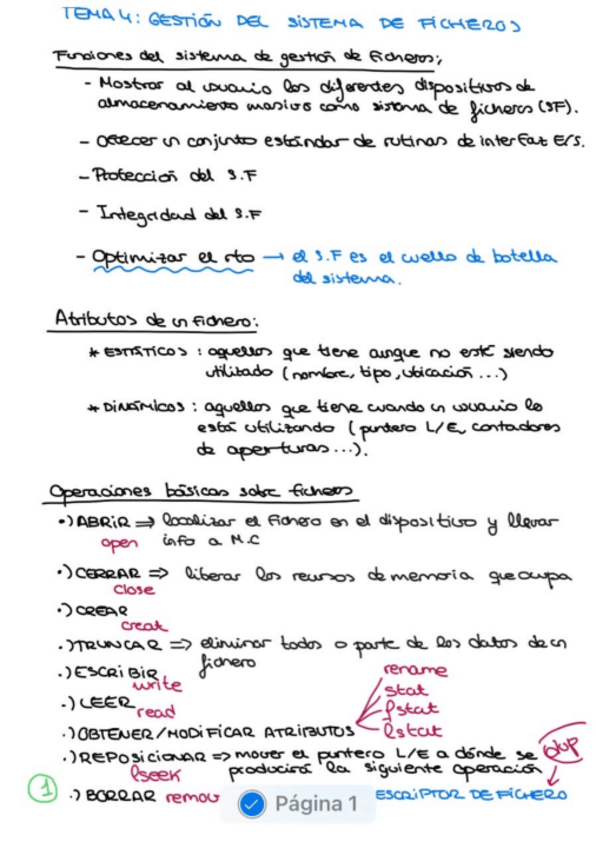 TEMA 4: GESTIÓN DEL SISTEMA DE FICHEROS
Funciones del sistema de gestión de ficheros;
- Mostrar al usuario los diferentes dispositivos de
almacenamiento masivo como sistema de ficheros (SF).
- Ofrecer un conjunto estándar de rutinas de interfaz E/S.
- Protección del S.F
- Integridad del S.F
- Optimizar el rto → el S.F es el cuello de botella
del sistema.
Atributos de un fichero:
* ESTÁTICOS : aquellos que tiene aunque no esté siendo
utilizado (nombre, tipo, ubicación ...)
* DINÁMICOS : aquellos que tiene cuando un usuario lo
está utilizando (puntero L/E, contadores
de aperturas ...).
Operaciones básicas sobre ficheros
·) ABRIR ⇒ localizar el fichero en el dispositivo y llevar
open info a M.C
·) CERRAR ⇒ liberar los recursos de memoria que ocupa
close
·) CREAR
creat
·) TRUNCAR ⇒ eliminar todos o parte de los datos de un
fichero
·) ESCRIBIR
write
·) LEER
read
rename
stat
fstat
·) OBTENER/MODIFICAR ATRIBUTOS lstat
·) REPOSICIONAR ⇒ mover el puntero L/E a dónde se dup
lseek producirá la siguiente operación
1 ·) BORRAR remov Página 1 ESCRIPTOR DE FICHERO